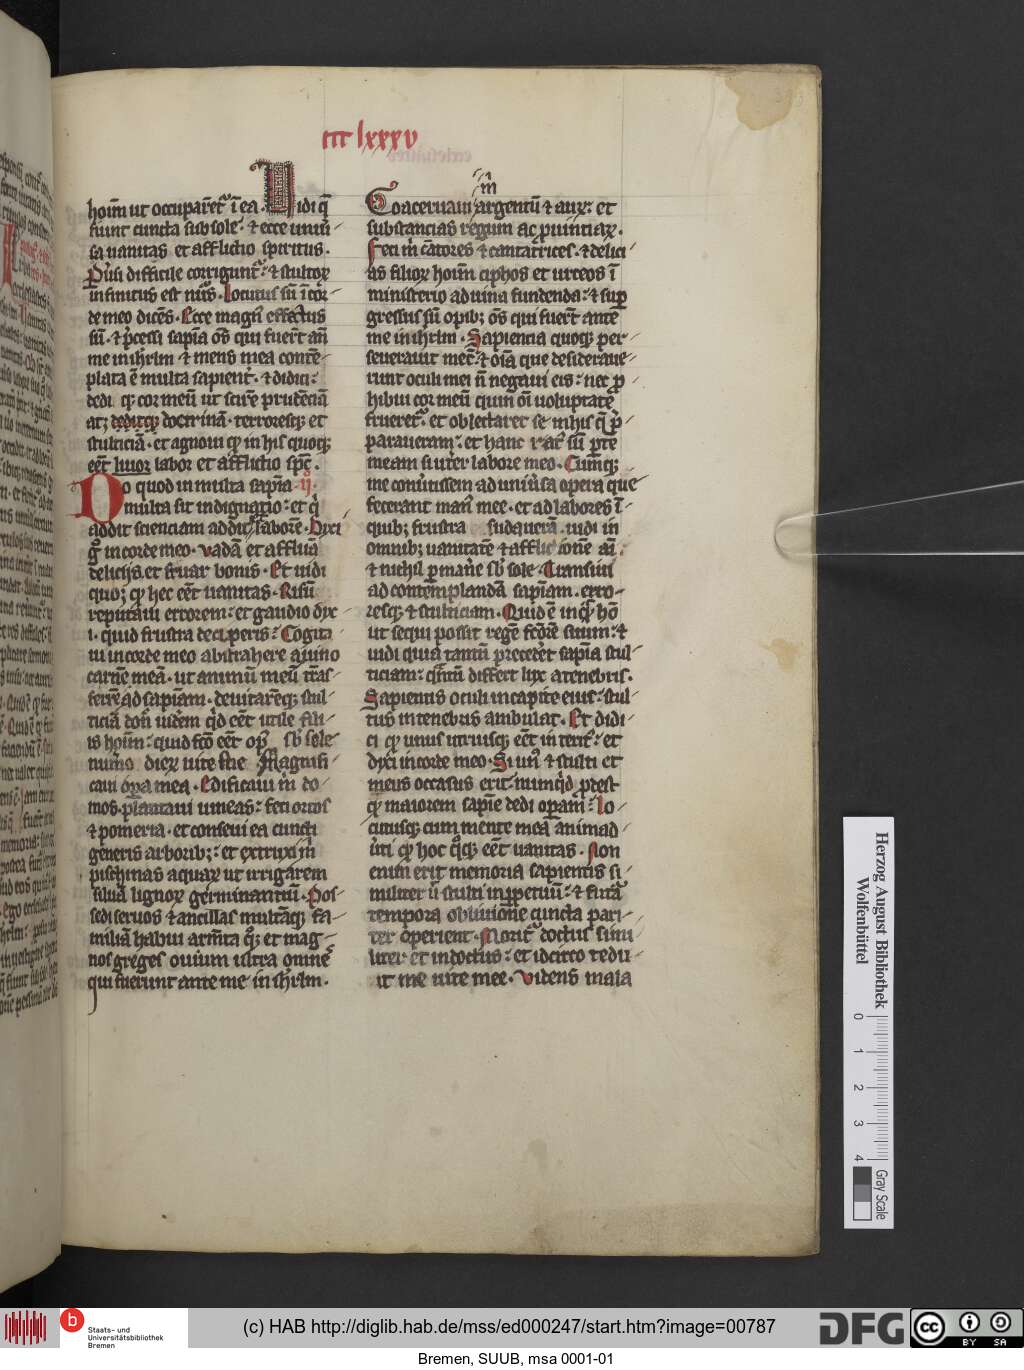 ccc lxxxv
hoim̄ ut occuparet̄ ī ea. Vidi q̄
fiunt cuncta sub sole. ⁊ ecce uniu͛
sa uanitas et afflictio spiritus.
difficile corrigunt̄: ⁊ stultoꝝ
infinitus est Locutus sū ī cor
de meo dicēs. Ecce magn᷒ effectus
sū. ⁊ p̄cessi sapīa oēs qui fuer̄t an̄
me in ihrlm ⁊ mens mea contē
plata ē multa sapient̄. ⁊ didici:
dedi qꝫ cor meū ut scire prudēciā
atꝫ doctrinā. erroresqꝫ et
stulticiā. et agnoui qꝫ in his quoqꝫ
eēt labor et afflictio sp̄c.
Eo quod in multa sapīa ij
multa sit indignatio: et q͛
addit scienciam addit laborē. Dixi
g̊ in corde meo. Vadā et affluā
delicijs et fruar bonis. Et uidi
quoꝫ qꝫ hec eēt uanitas. Risū
reputaui errorem: et gaudio dixi
i. quid frustra deciperis? Cogita
ui in corde meo abstrahere a uino
carnē meā. ut animū meū tr̄as
ferrē ad sapiam. deuitarēqꝫ stul
ticiā don̄ uidem̄ qd̄ eēt utile fili
is hoim̄: quid fc̄o eēt op᷒ sb̄ sole
num̄o dieꝝ uite sue Magnifi
caui opera mea. Edificaui m̄ do
mos. plantaui uineas: feci ortos
⁊ pomeria. et conseui ea cuncti
generis arboribꝫ: et extruxi m̄
pischinas aquaꝝ ut irrigarem
siluā lignoꝝ germinantiū. Pos
sedi seruos ⁊ ancillas multāqꝫ fa
miliā habui armēta qꝫ et mag
nos greges ouium ultra omnē
qui fuerunt ante me in ihrlm.
m̄
Coaceruaui argentū ⁊ auꝝ: et
substancias regum ac puinciaꝝ.
Feci m̄ cātores ⁊ cantatrices. ⁊ delici
as filioꝝ hoim̄ ciphos et urceos ī
ministerio ad uina fundenda: ⁊ sup
gressus sū opibꝫ oēs qui fuer̄t ante
me in ihrlm. Sapiencia quoqꝫ per
seuerauit mec̄: ⁊ oīa que desideraue
runt oculi mei n̄ negaui eis: nec p
hibui cor meū quin oī uoluptate
frueret̄. et oblectaret se in his q̄ p̄
paraueram: et hanc rat᷒ sū ꝑtē
meam si ut̄er labore meo. Cumqꝫ
me conūtissem ad uniūsa opera que
fecerant man᷒ mee. et ad labores ī
quibꝫ frustra sudauerā. uidi in
omnibꝫ uanitatē ⁊ afflictionē ai͛.
⁊ nichil ꝑmane sb̄ sole. Transiui
ad contēplandā sapiam. erro
resqꝫ ⁊ stulticiam. Quid ē inqꝫ hō
ut sequi possit regē fc̄orē suum: ⁊
uidi quia tantū precedet̄ sapīa stul
ticiam: qn̄tū differt lux a tenebris.
Sapientis oculi in capite eius: stul
tus in tenebris ambulat. Et didi
ci qꝫ unus utriusqꝫ eēt interit᷒: et
dixi in corde meo. Si un᷒ ⁊ stulti et
meus occasus erit. numqd̄ pdest
qꝫ maiorem sapie dedi operam: Lo
cutusqꝫ cum mente mea animad
ūti qꝫ hoc qꝫqꝫ eēt uanitas. Non
enim erit memoria sapientis si
militer ū stulti inꝑpetuū: ⁊ futā
tempora obliuiōne cuncta pari
ter operient. Morit̄ doctus simi
liter et indoctus: et idcirco tedu
it me uite mee. Videns mala
Herzog August Bibliothek
Wolfenbüttel
0 1 2 3 4
Gray Scale
b
Staats- und
Universitätsbibliothek
Bremen
(c) HAB http://diglib.hab.de/mss/ed000247/start.htm?image=00787
DFG
cc
BY SA
Bremen, SUUB, msa 0001-01